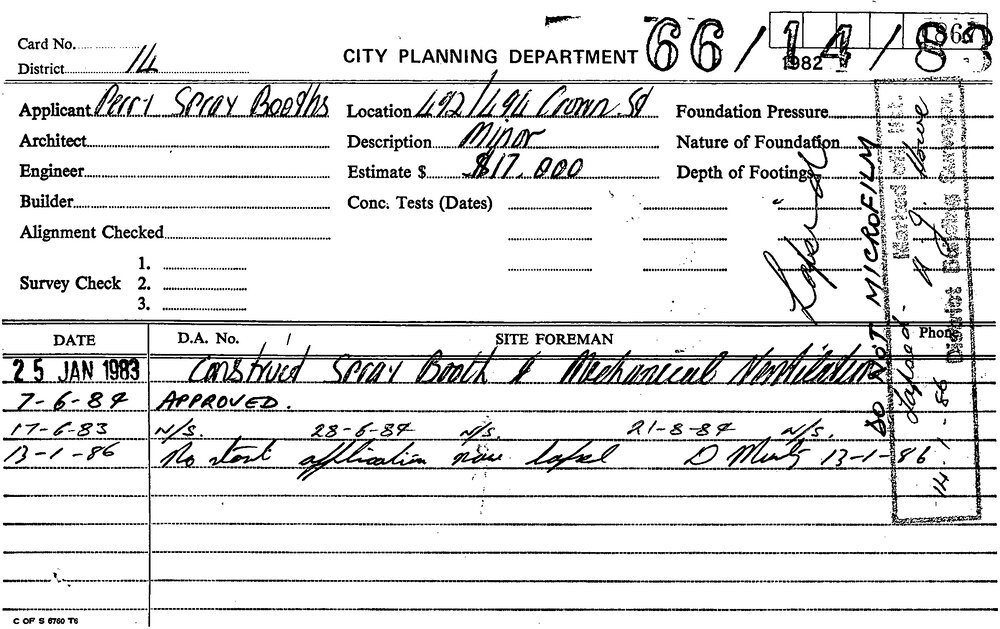 Card No.
District 14
CITY PLANNING DEPARTMENT
66/14/83
1982
Applicant Perry Spray Booths
Location 492/494 Crown St
Foundation Pressure
Architect
Description Minor
Nature of Foundation
Engineer
Estimate $ $17.000
Depth of Footings
Builder
Conc. Tests (Dates)
Alignment Checked
Survey Check 1.
2.
3.
Lapsed
DO NOT MICROFILM
Marked off list.
Lapsed
14-1-86
District Building Surveyor.
DATE D.A. No. SITE FOREMAN Phone
25 JAN 1983 Construct Spray Booth & Mechanical Ventilation
7-6-84 APPROVED.
17-6-83 N/S. 28-6-84 N/S. 21-8-84 N/S.
13-1-86 No start application now lapsed D 13-1-86
C OF S 6760 T6